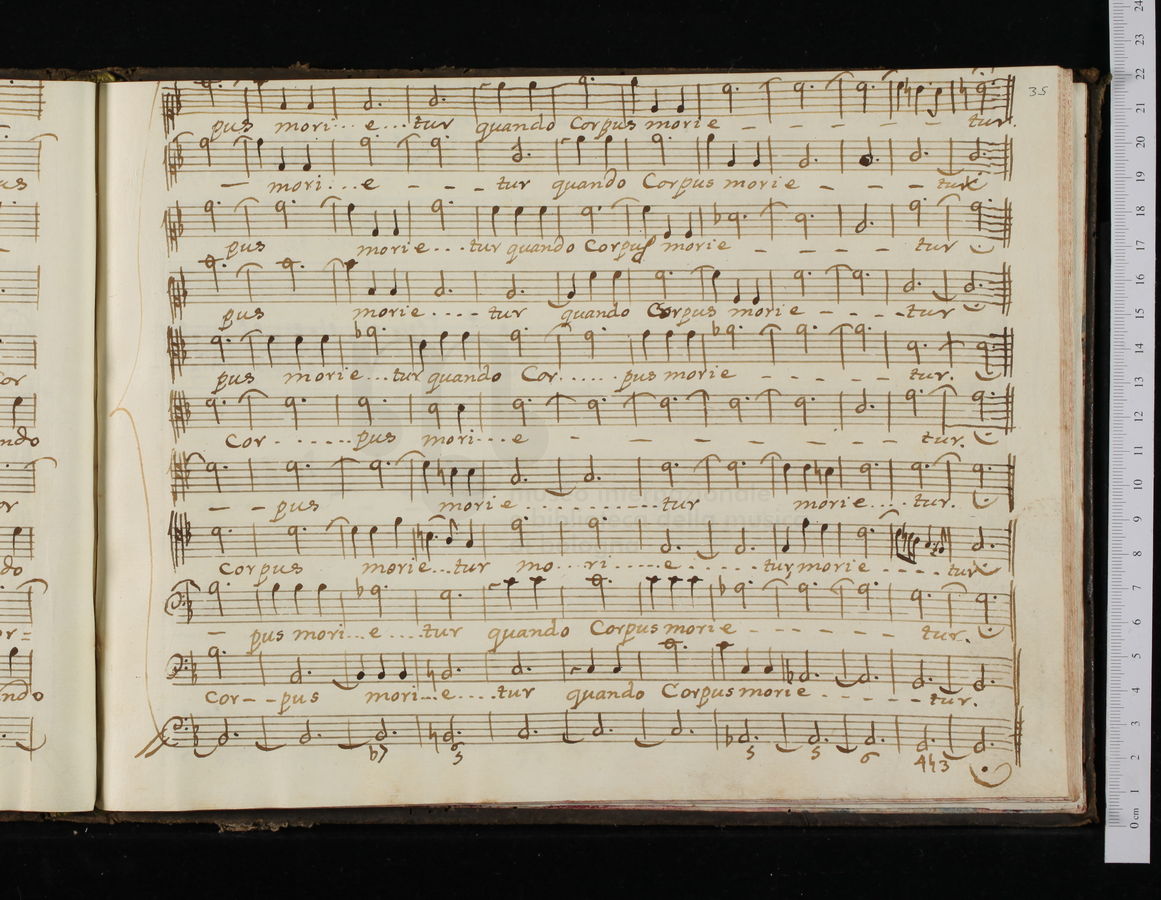 35
pus mori...e...tur quando Corpus morie - - - - - - tur.
- mori...e - - - tur quando Corpus morie - - - tur
pus morie....tur quando Corpus morie - - - - tur
pus morie....tur quando Corpus morie - - - - tur
pus morie...tur quando Cor......pus morie - - - - - tur.
Cor.......pus mori...e - - - - - - - - tur.
- - pus morie............tur morie....tur.
Corpus morie...tur mo...ri.....e......tur morie....tur
- pus mori...e....tur quando Corpus morie - - - - - tur.
Cor--pus mori...e....tur quando Corpus morie - - - - tur.
♭7 5 5 5 6 4♮3
museo internazionale